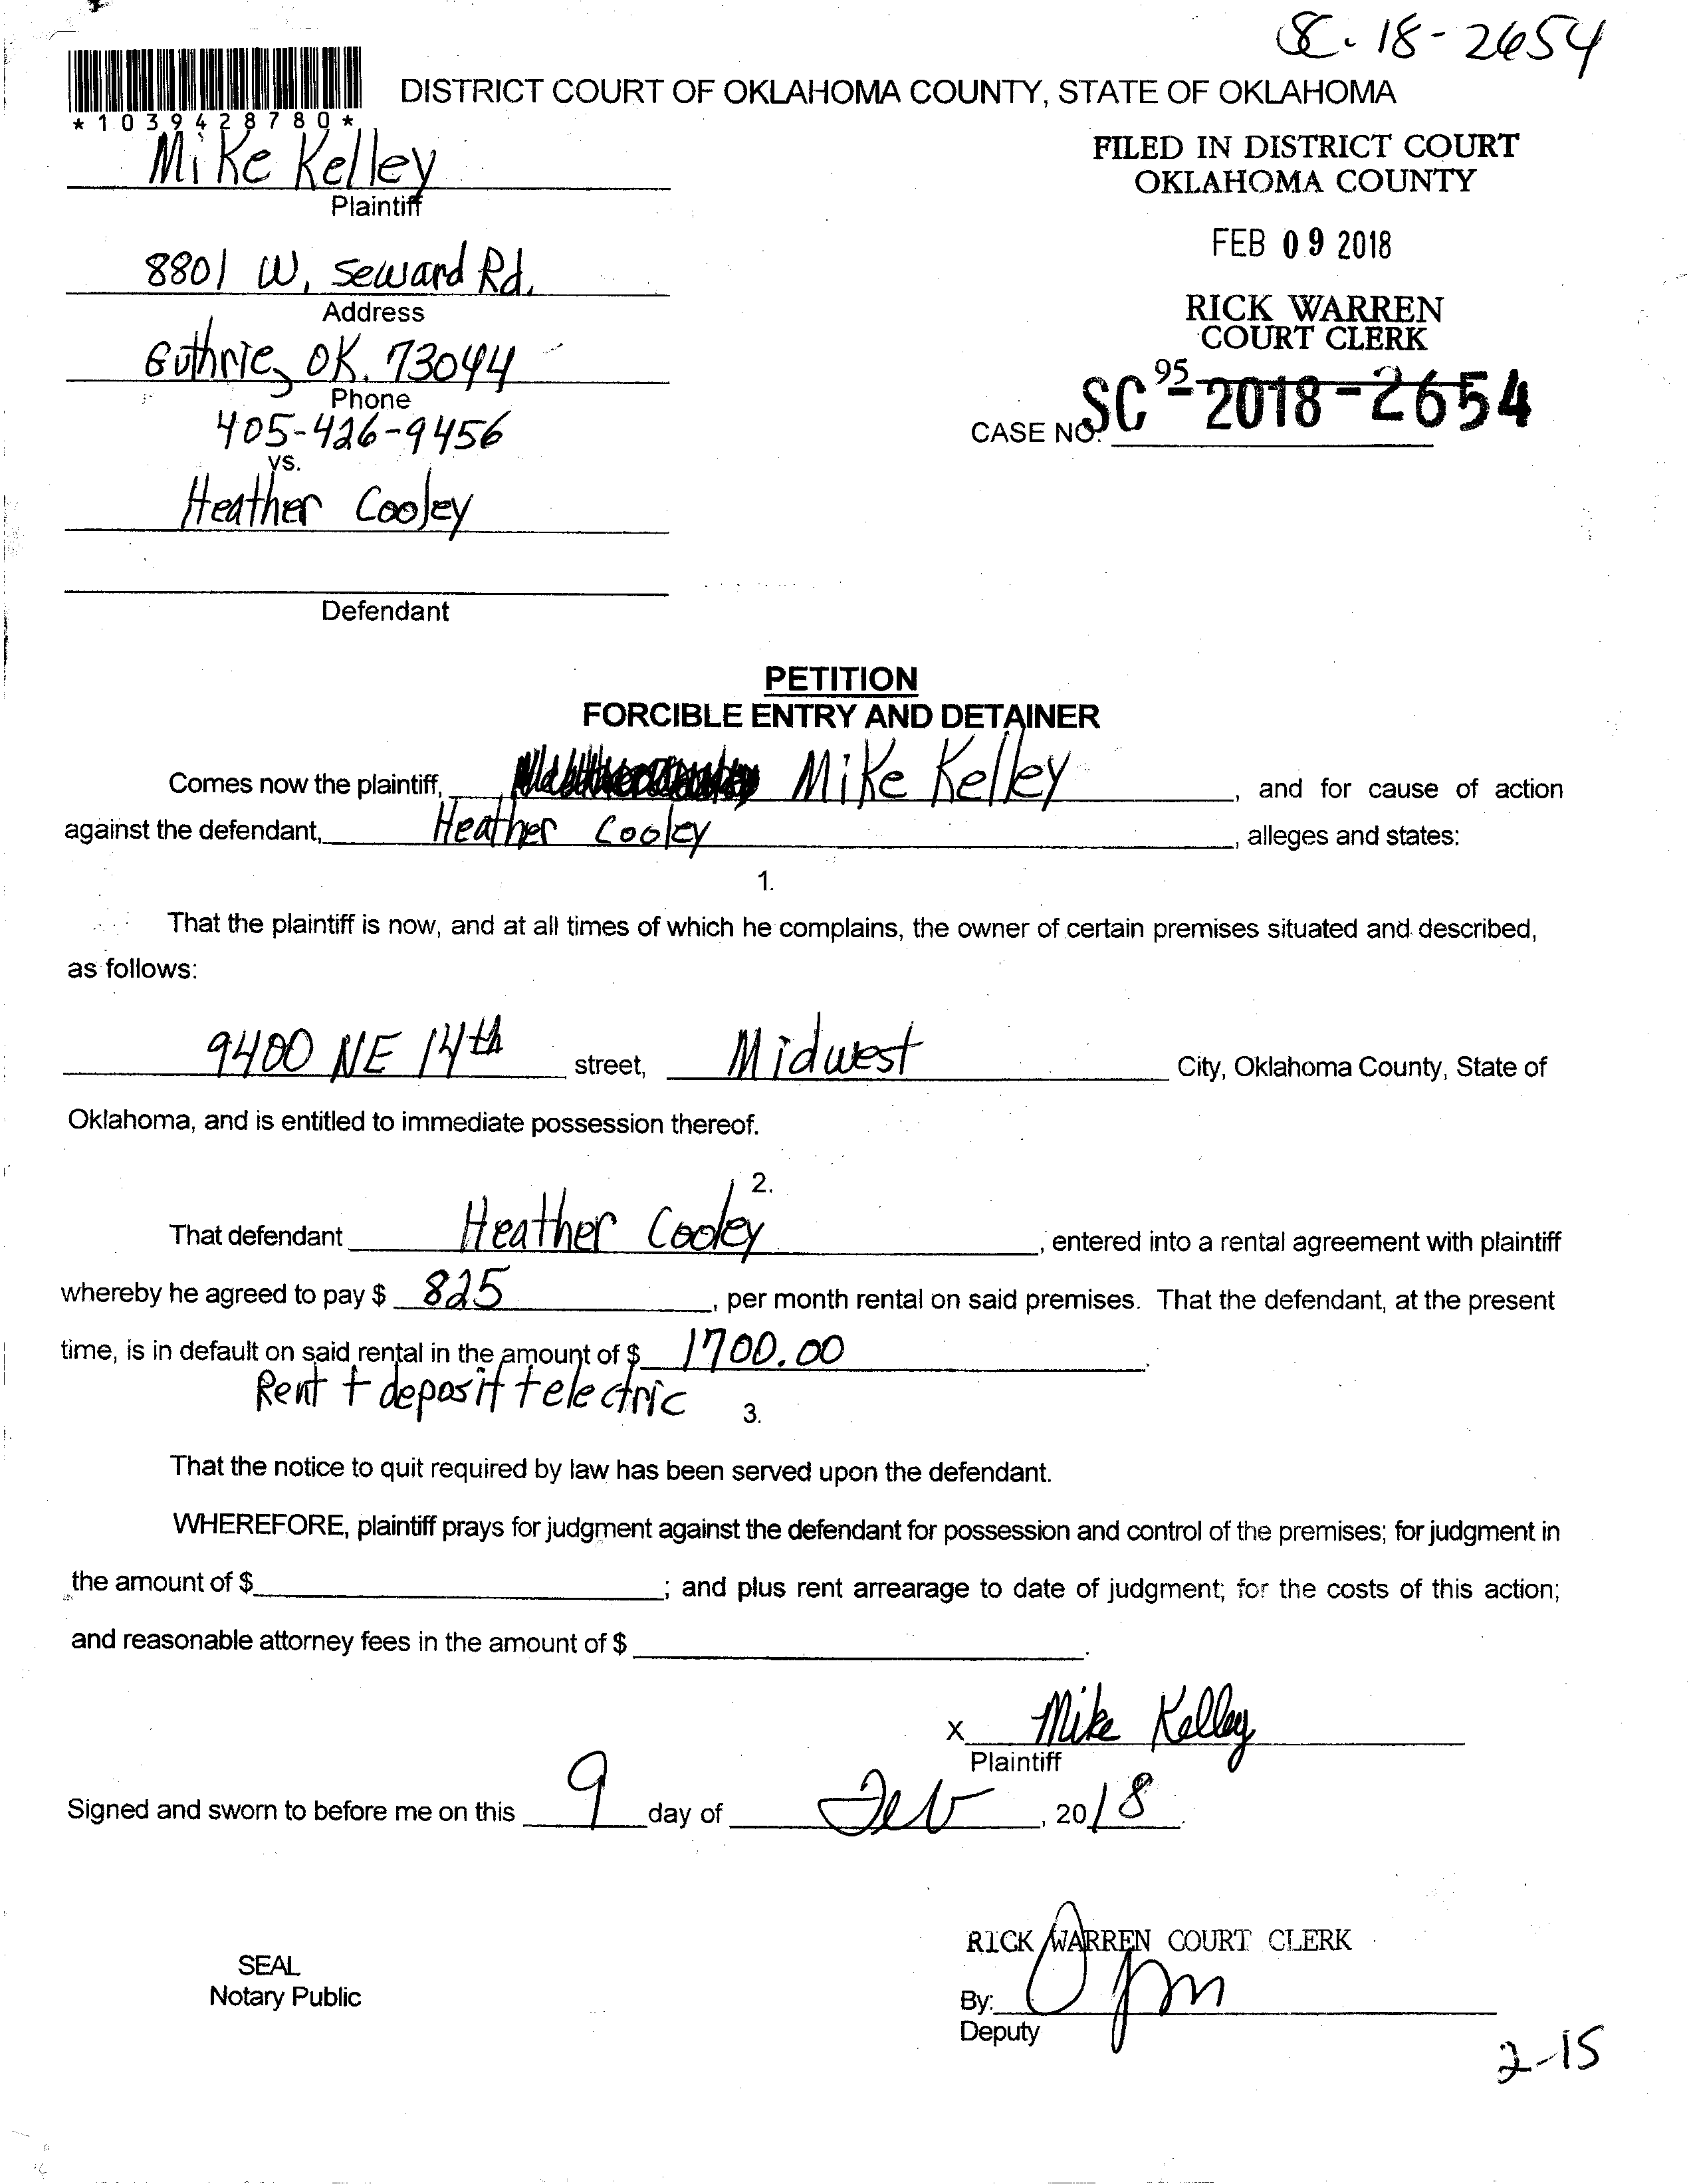 SC. 18-2654
DISTRICT COURT OF OKLAHOMA COUNTY, STATE OF OKLAHOMA
* 1 0 3 9 4 2 8 7 8 0 *
Mike Kelley
Plaintiff
FILED IN DISTRICT COURT
OKLAHOMA COUNTY
FEB 09 2018
RICK WARREN
COURT CLERK
8801 W. Seward Rd.
Address
Guthrie, OK. 73044
Phone
405-426-9456
95
CASE NO. SC - 2018 - 2654
vs.
Heather Cooley
Defendant
PETITION
FORCIBLE ENTRY AND DETAINER
Comes now the plaintiff, Mike Kelley, and for cause of action
against the defendant, Heather Cooley, alleges and states:
1.
That the plaintiff is now, and at all times of which he complains, the owner of certain premises situated and described,
as follows:
9400 NE 14th street, Midwest City, Oklahoma County, State of
Oklahoma, and is entitled to immediate possession thereof.
2.
That defendant Heather Cooley, entered into a rental agreement with plaintiff
whereby he agreed to pay $ 825, per month rental on said premises. That the defendant, at the present
time, is in default on said rental in the amount of $ 1700.00.
Rent + deposit + electric
3.
That the notice to quit required by law has been served upon the defendant.
WHEREFORE, plaintiff prays for judgment against the defendant for possession and control of the premises; for judgment in
the amount of $ ; and plus rent arrearage to date of judgment; for the costs of this action;
and reasonable attorney fees in the amount of $ .
X Mike Kelley
Plaintiff
Signed and sworn to before me on this 9 day of Feb, 2018.
RICK WARREN COURT CLERK
SEAL
Notary Public
By:
Deputy
2-15